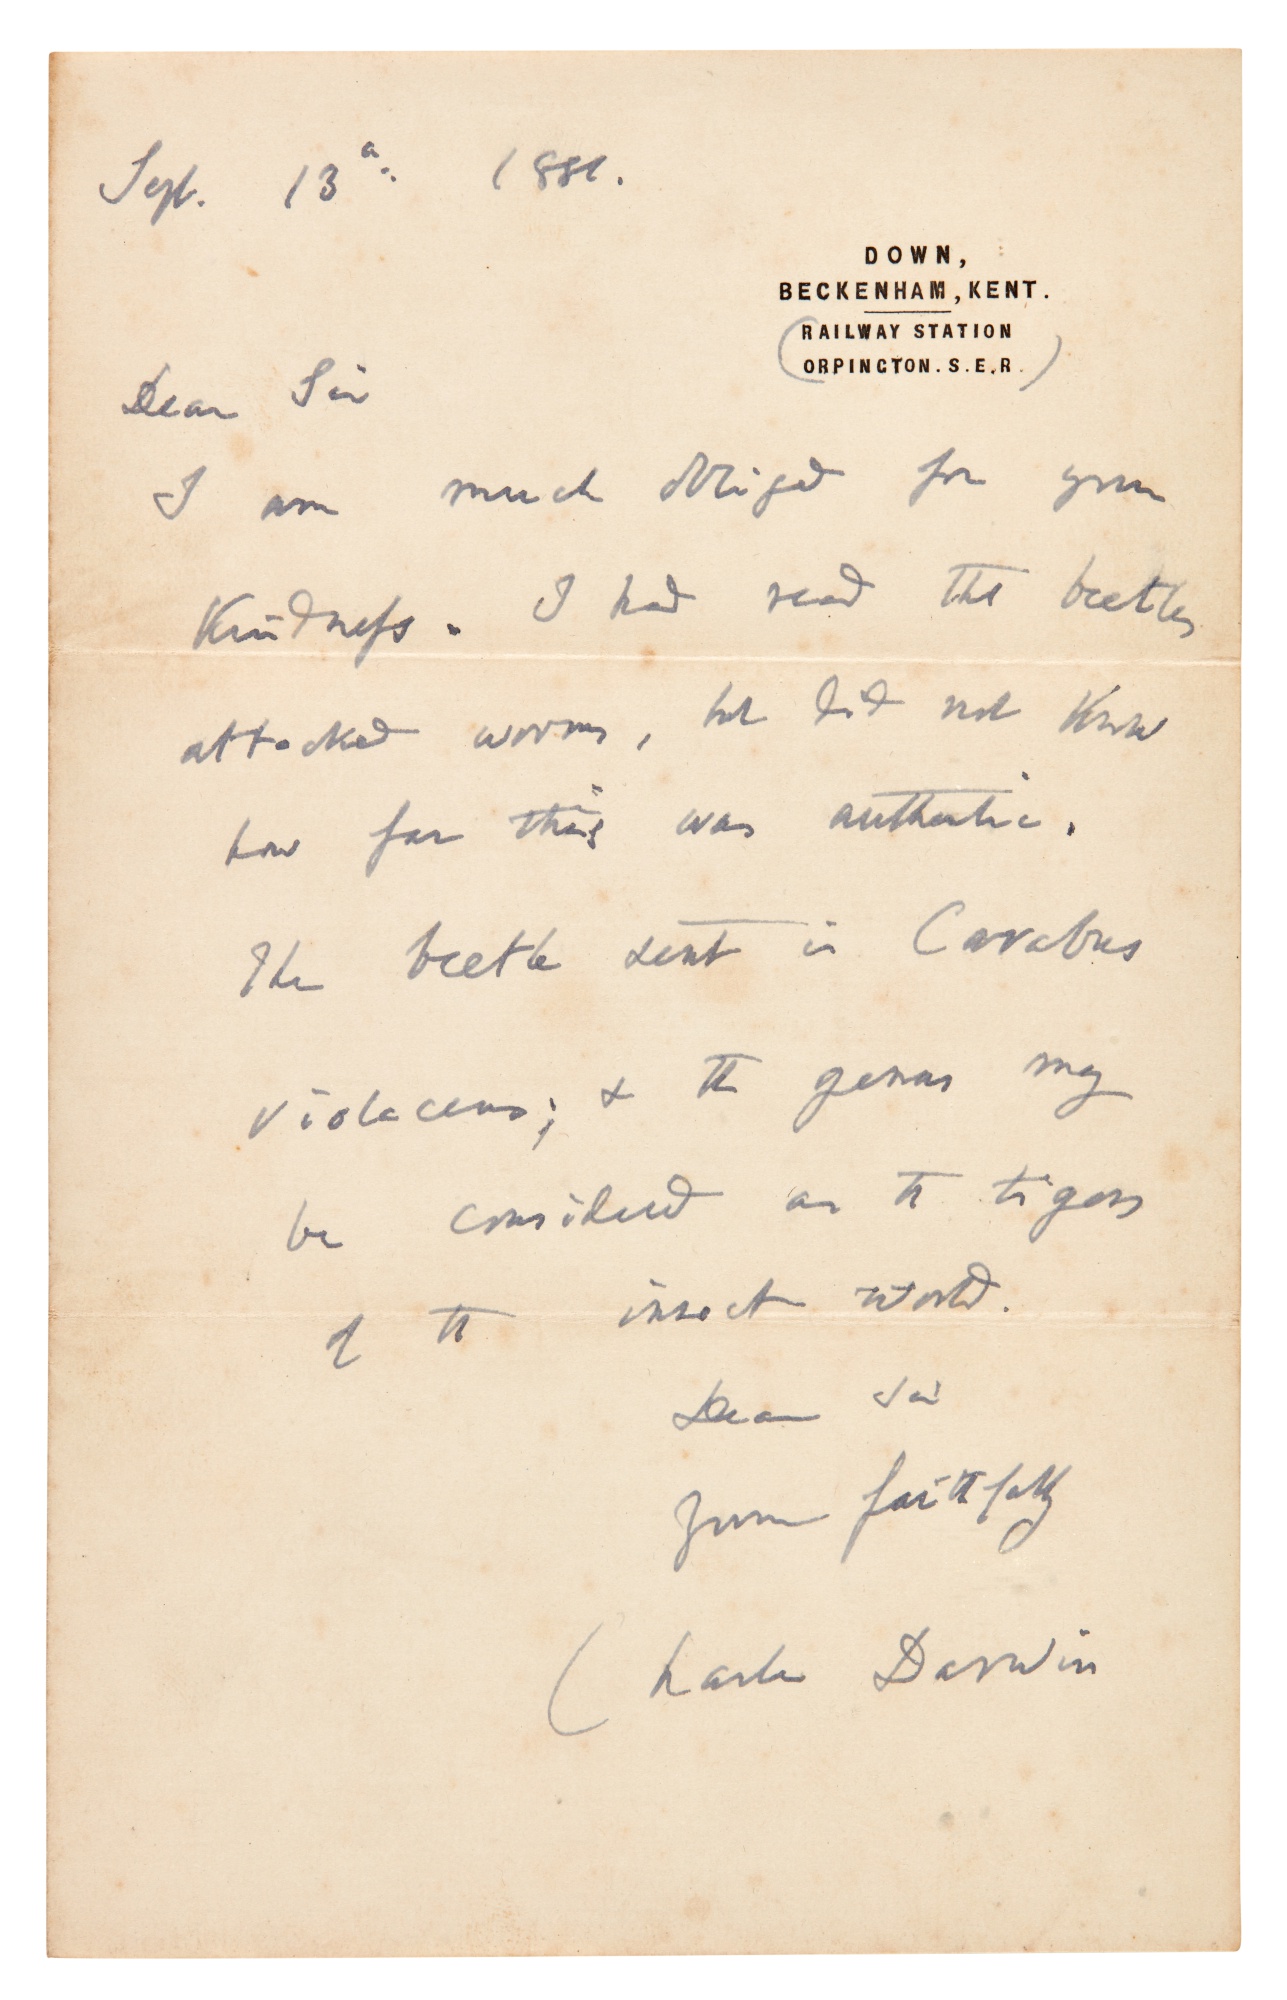 Sept. 13th. 1881.
DOWN,
BECKENHAM, KENT.
(RAILWAY STATION
ORPINGTON. S.E.R.)
Dear Sir
I am much obliged for your
Kindness. I had read the beetles
attacked worms, but did not know
how far this was authentic.
The beetle sent is Carabus
violaceus; & the genus may
be considered as the tigers
of the insect world.
Dear Sir
Yours faithfully
Charles Darwin